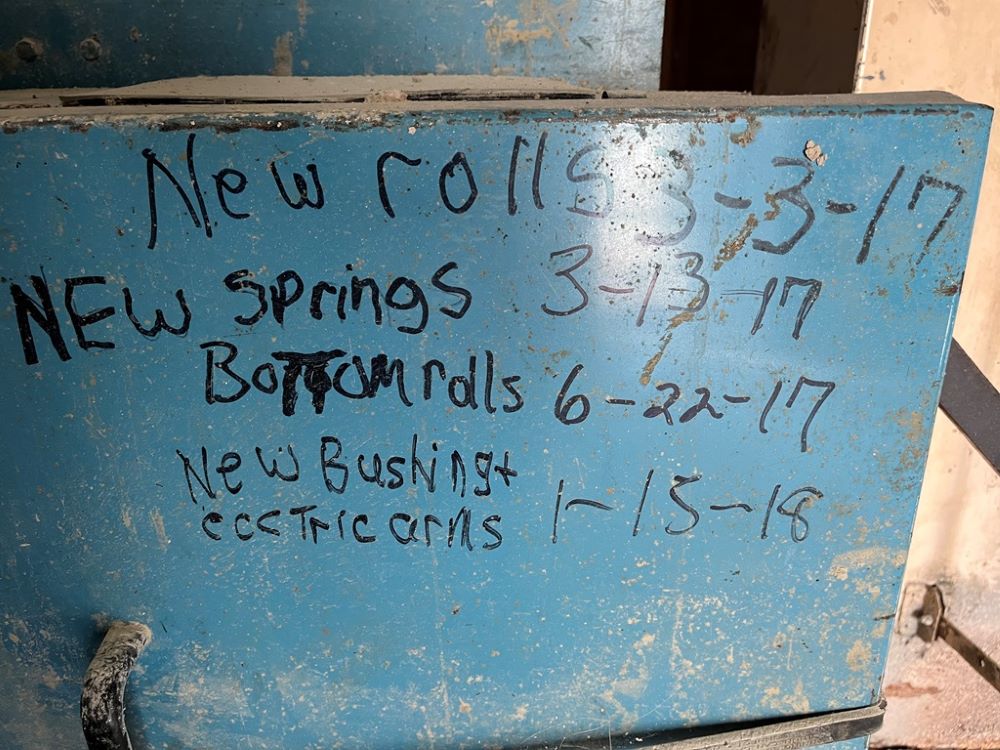 New rolls 3-3-17
NEW springs 3-13-17
BoTTom rolls 6-22-17
New Bushing+
eccTric arms 1-15-18